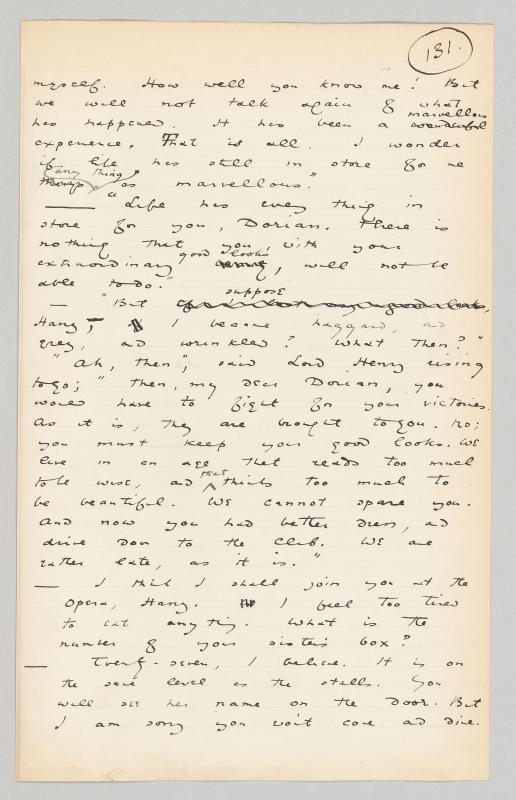 131.
myself. How well you know me! But
we will not talk again of what
marvellous
has happened. It has been a wonderful
experience. That is all. I wonder
if life has still in store for me
any thing
things as marvellous."
"Life has every thing in
store for you, Dorian. There is
nothing that you, with your
good looks
extraordinary , will not be
able to do."
suppose
— "But
Harry, I became haggard, and
grey, and wrinkled? What then?"
"Ah, then", said Lord Henry rising
to go; "then, my dear Dorian, you
would have to fight for your victories.
As it is, they are brought to you. No;
you must keep your good looks. We
live in an age that reads too much
that
to be wise, and thinks too much to
be beautiful. We cannot spare you.
And now you had better dress, and
drive down to the Club. We are
rather late, as it is."
— I think I shall join you at the
Opera, Harry. I feel too tired
to eat anything. What is the
number of your sister's box?
— Twenty-seven, I believe. It is on
the same level as the stalls. You
will see her name on the door. But
I am sorry you won't come and dine.